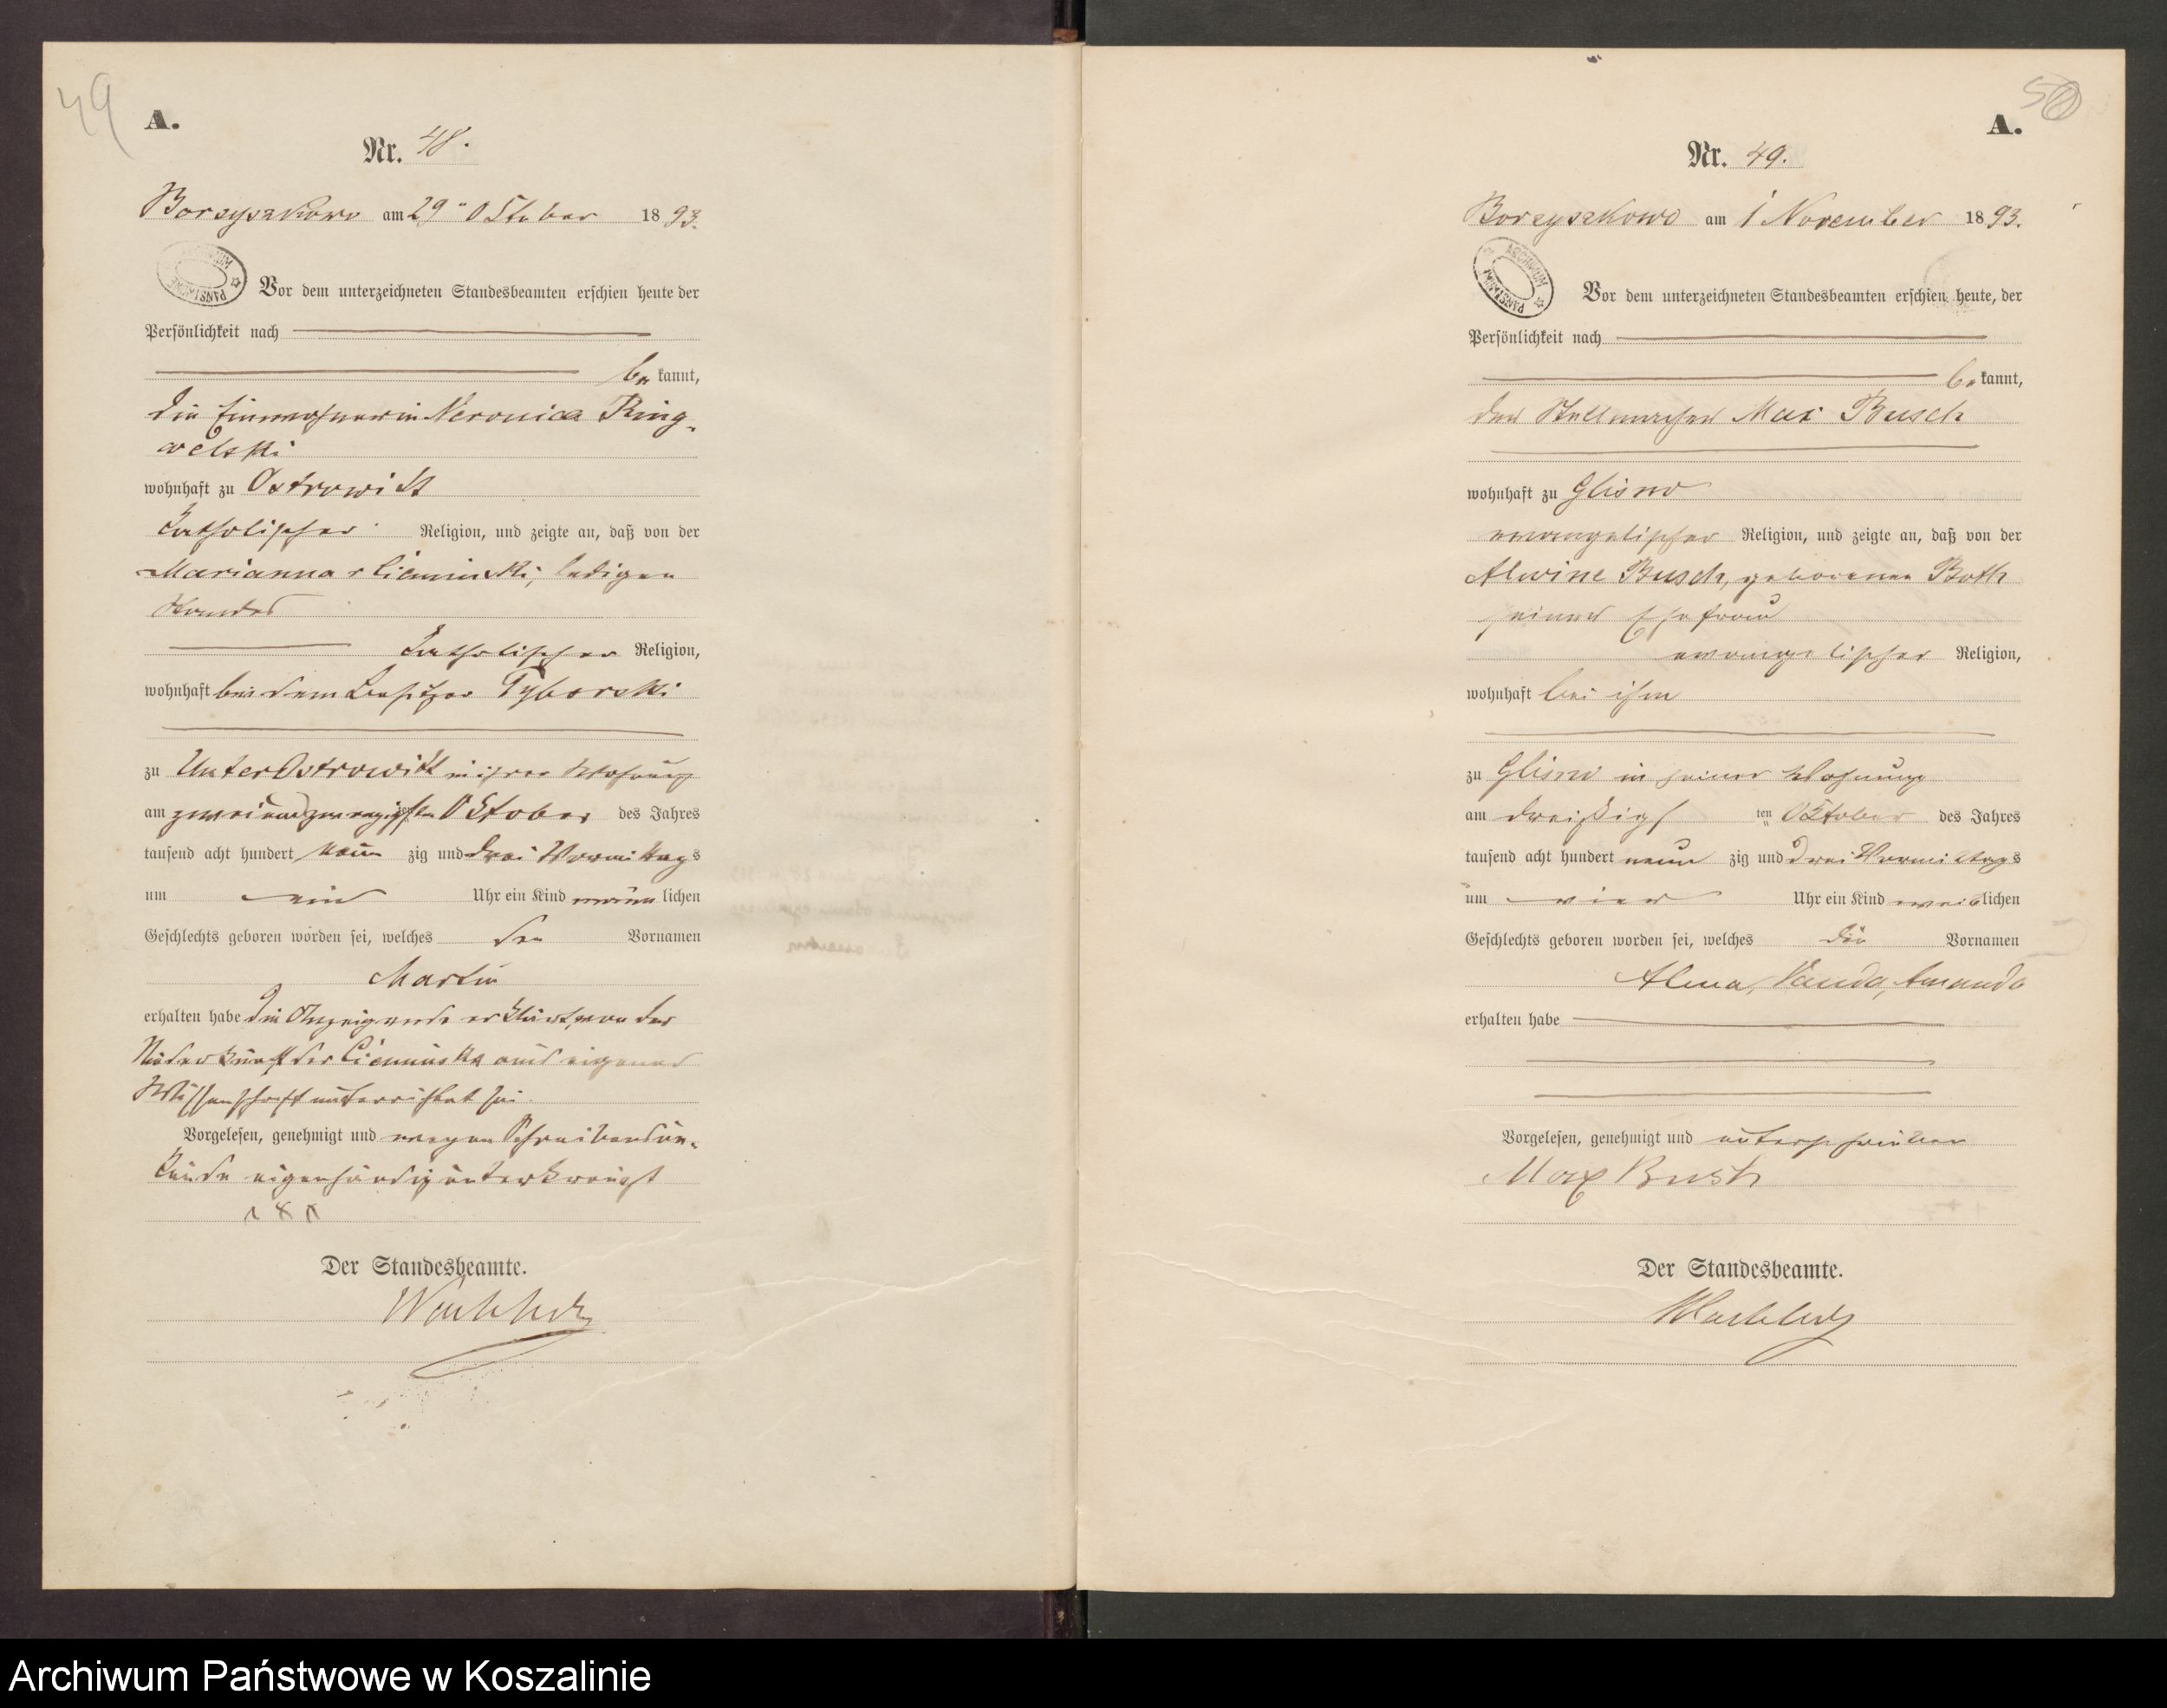 49
A.
Nr. 48.
Borzyszkowo am 29ten Oktober 1893.
Vor dem unterzeichneten Standesbeamten erschien heute der
Persönlichkeit nach
bekannt,
die Einwohnerin Veronica Ring-
welski
wohnhaft zu Ostrowitt
katholischer Religion, und zeigte an, daß von der
Marianna Cieminski, ledigen
Standes
katholischer Religion,
wohnhaft bei dem Besitzer Tyborski
zu Unter Ostrowitt in ihrer Wohnung
am zweiundzwanzigsten Oktober des Jahres
tausend acht hundert neunzig und drei Vormittags
um ein Uhr ein Kind männlichen
Geschlechts geboren worden sei, welches den Vornamen
Martin
erhalten habe die Anzeigende erklärt, von der
Niederkunft der Cieminska aus eigener
Wissenschaft unterrichtet sei.
Vorgelesen, genehmigt und wegen Schreibensun-
kunde eigenhändig unterkreuzt
x x x
Der Standesbeamte.
50
A.
Nr. 49.
Borzyszkowo am 1 November 1893.
ARCHIWUM PAŃSTWOWE
Vor dem unterzeichneten Standesbeamten erschien heute, der
Persönlichkeit nach
bekannt,
der Stellmacher Max Busch
wohnhaft zu Glisno
evangelischer Religion, und zeigte an, daß von der
Alwine Busch, geborenen Both
seiner Ehefrau
evangelischer Religion,
wohnhaft bei ihm
zu Glisno in seiner Wohnung
am dreißigsten Oktober des Jahres
tausend acht hundert neunzig und drei Vormittags
um vier Uhr ein Kind weiblichen
Geschlechts geboren worden sei, welches die Vornamen
Alma, Vanda, Amanda
erhalten habe
Vorgelesen, genehmigt und unterschrieben
Max Busch
Der Standesbeamte.
Archiwum Państwowe w Koszalinie